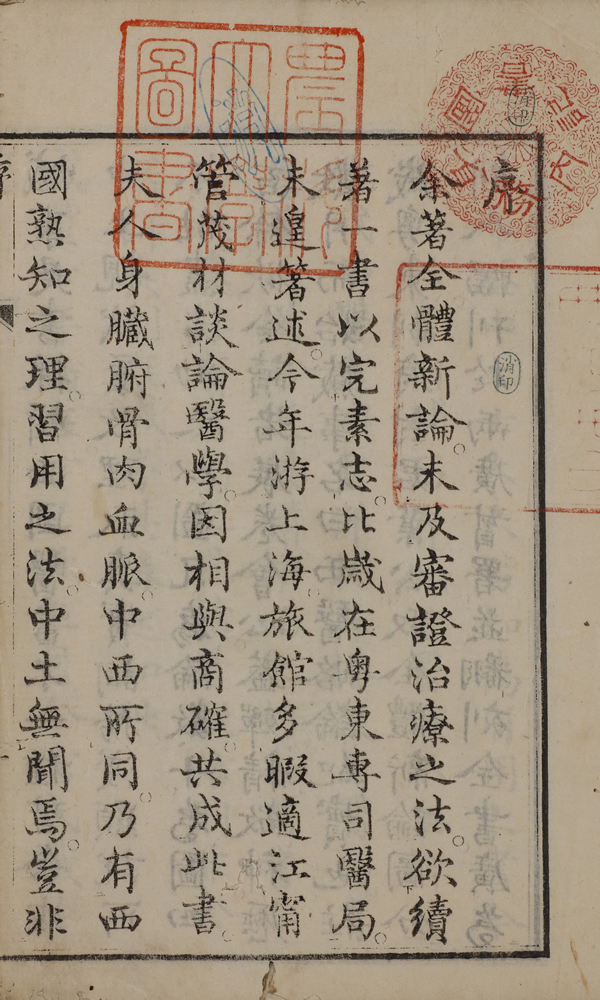 序
余著全體新論。未及審證治療之法。欲續
著一書以完素志。比歲在粵東專司醫局。
未遑著述。今年游上海旅館多暇適江甯
管茂材談論醫學。因相與商確。共成此書。
夫人身臟腑骨肉血脈。中西所同。乃有西
國熟知之理。習用之法。中土無聞焉。豈非
消印
消印